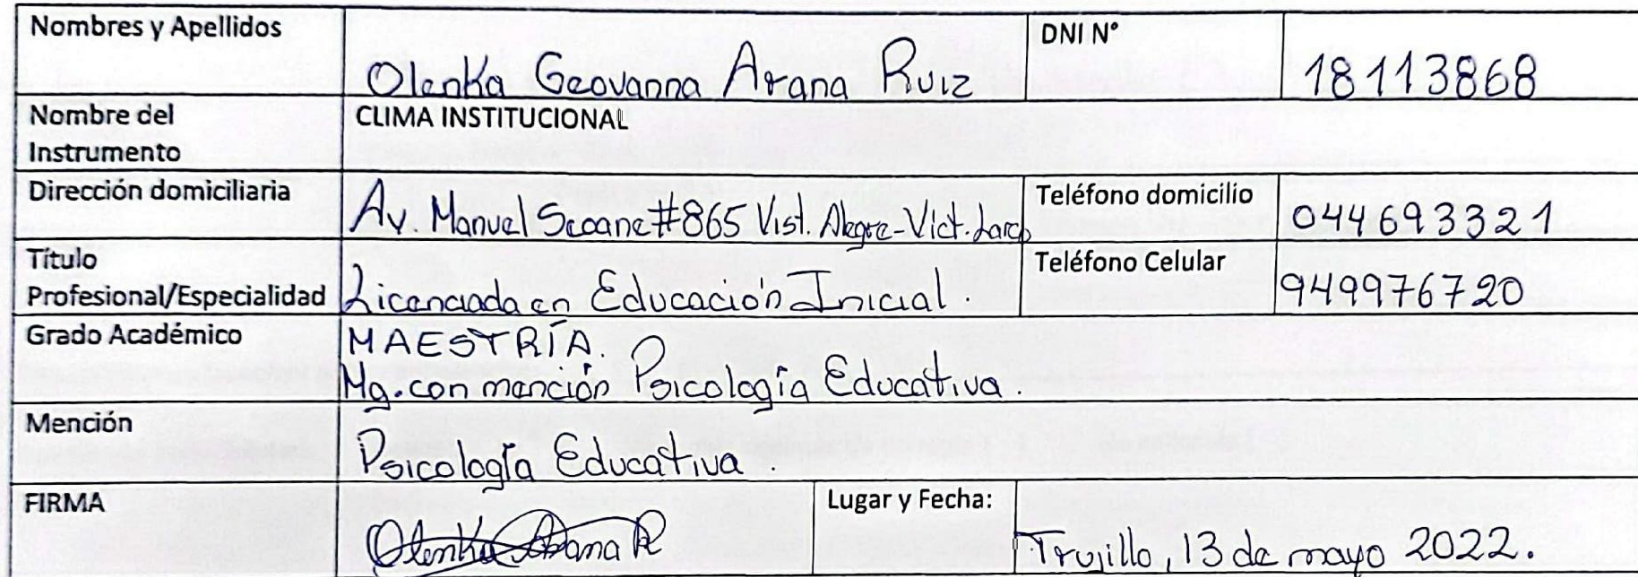 Nombres y Apellidos
Olenka Geovanna Arana Ruiz
DNI N°
18113868
Nombre del
Instrumento
CLIMA INSTITUCIONAL
Dirección domiciliaria
Av. Manuel Seoane #865 Vist. Alegre-Vict. Larco
Teléfono domicilio
044693321
Título
Profesional/Especialidad
Licenciada en Educación Inicial.
Teléfono Celular
949976720
Grado Académico
MAESTRÍA.
Mg. con mención Psicología Educativa.
Mención
Psicología Educativa.
FIRMA
Olenka Arana R
Lugar y Fecha:
Trujillo, 13 de mayo 2022.